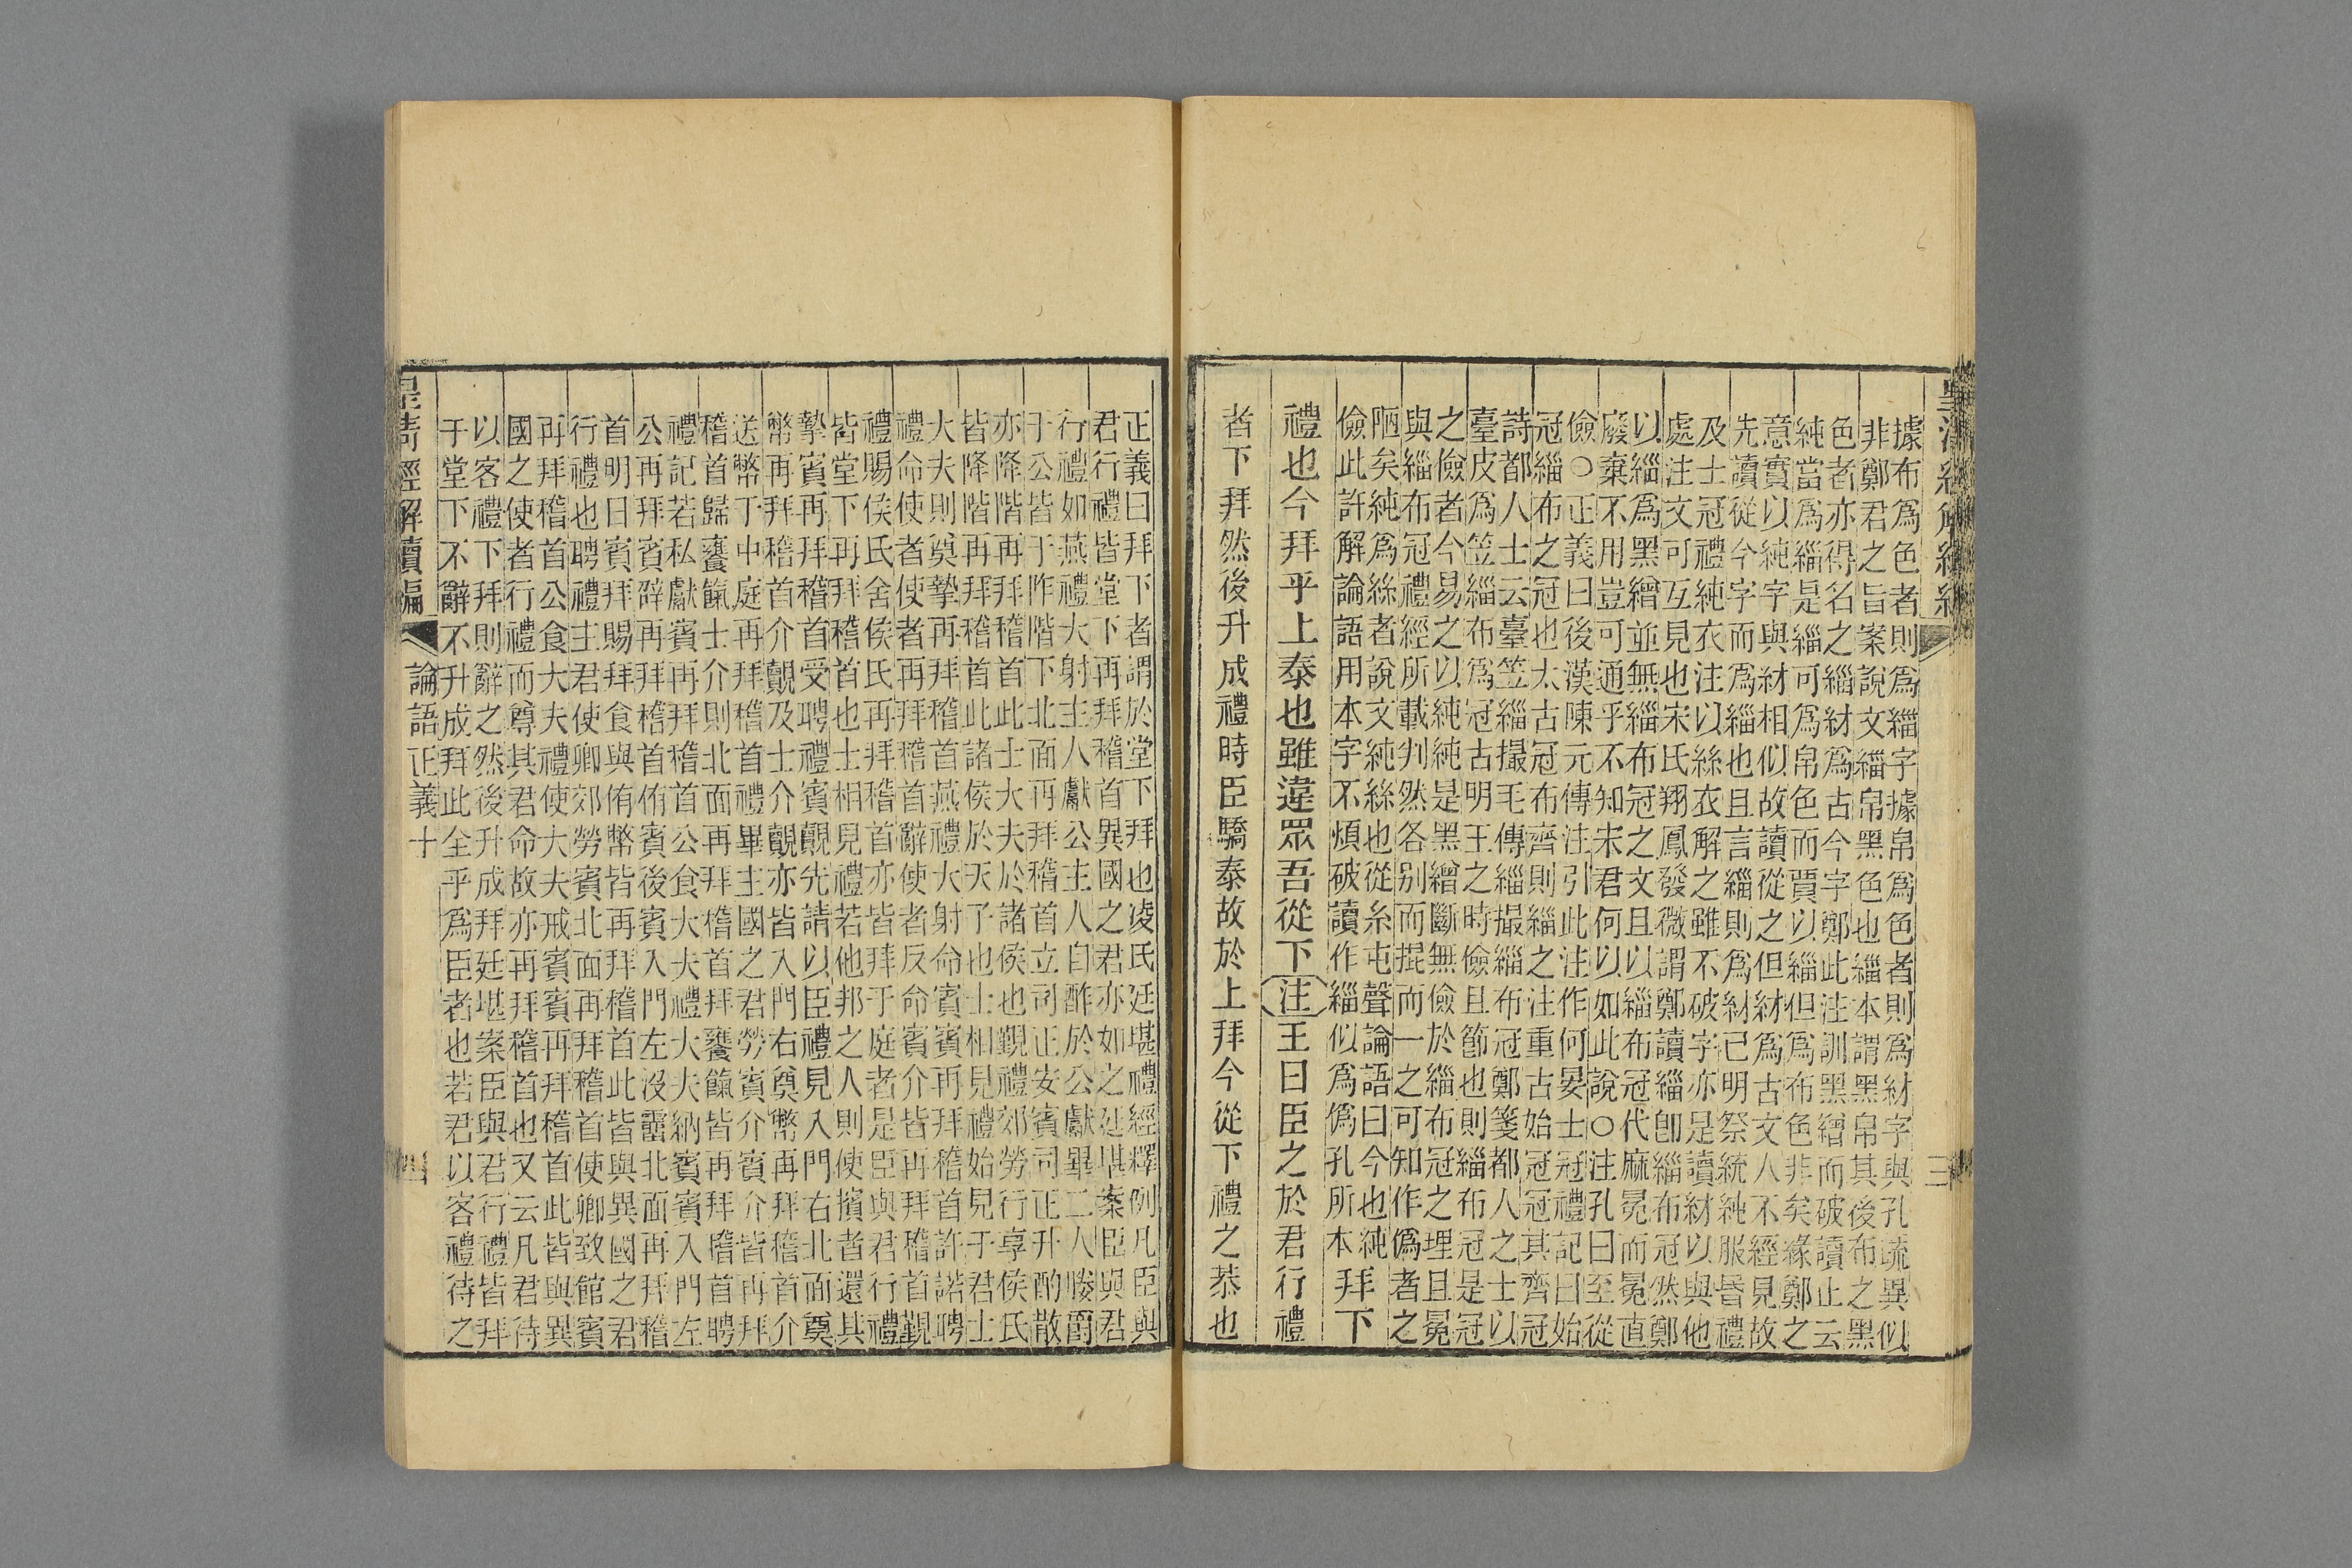 據布爲色者則爲緇字據帛爲色者則爲材字與孔疏異似
非鄭君之旨案說文緇帛黑色也緇本謂黑帛其後布之黑
色者亦得名之緇材爲古今字鄭此注訓黑繒而破讀止云
純當爲緇是緇可爲帛色而賈以緇但爲布色非矣緣鄭之
意實以純字與材相似故讀從之但材爲古文人不經見故
先讀從今字而爲緇也且言緇則爲材已明祭統純服昏禮
及士冠禮純衣注以絲衣解之雖不破字亦是讀材以與他
處注文可互見也宋氏翔鳳發微謂鄭讀緇卽緇布冠然鄭
以緇爲黑繒並無緇布冠之文且以緇布冠代麻冕而冕直
廢棄不用豈可通乎不知宋君何以如此說○注孔曰至從
儉○正義曰後漢陳元傳注引此注作何晏士冠禮記曰始
冠緇布之冠也太古冠布齊則緇之注重古始冠冠其齊冠
詩都人士云臺笠緇撮毛傳緇撮緇布冠鄭箋都人之士以
臺皮爲笠緇布爲冠古明王之時儉且節也則緇布冠是冠
之儉者今易之以純純是黑繒斷無儉於緇布冠之理且冕
與緇布冠禮經所載判然各別而掍而一之可知作僞者之
陋矣純爲絲者說文純絲也從糸屯聲論語曰今也純
儉此許解論語用本字不煩破讀作緇似爲僞孔所本拜下
禮也今拜乎上泰也雖違眾吾從下注王曰臣之於君行禮
者下拜然後升成禮時臣驕泰故於上拜今從下禮之恭也
三
正義曰拜下者謂於堂下拜也凌氏廷堪禮經釋例凡臣與
君行禮皆堂下再拜稽首異國之君亦如之廷堪案臣與君
行禮如燕禮大射主人獻公主人自酢於公獻畢二人媵爵
于公皆于阼階下北面再拜稽首立司正安賓司正升酌散
亦降階再拜稽首此士大夫於諸侯也覲禮郊勞行享侯氏
皆降階再拜稽首此諸侯於天子也士相見禮始見于君士
大夫則奠摯再拜稽首燕禮大射命賓賓再拜稽首許諾聘
禮命使者使者再拜稽首辭使者反命賓介皆再拜稽首覲
禮賜侯氏舍侯氏再拜稽首亦皆拜于庭者是臣與君行禮
皆堂下再拜稽首也士相見禮若他邦之人則使擯者還其
摯賓再拜稽首受聘禮賓覿先請以臣禮見入門右北面奠
幣再拜稽首介覿及士介覿亦皆入門右奠幣再拜稽首介
送幣于中庭再拜稽首禮畢主國之君勞賓介賓介皆再拜
稽首歸饔餼士介則北面再拜稽首拜饔餼皆再拜稽首聘
禮記若私獻賓再拜稽首公食大夫禮大夫納賓賓入門左
公再拜賓辟再拜稽首侑賓後賓入門左沒霤北面再拜稽
首明日賓拜賜拜食與侑幣皆再拜稽首此皆與異國之君
行禮也聘禮主君使卿郊勞賓北面再拜稽首使卿致館賓
再拜稽首公食大夫禮使大夫戒賓賓再拜稽首此皆與異
國之使者行禮而尊其君命故亦再拜稽首也又云凡君待
以客禮下拜則辭之然後升成拜廷堪案臣與君行禮皆拜
于堂下不辭不升成拜此全乎爲臣者也若君以客禮待之
皇清經解續編
論語正義十
四